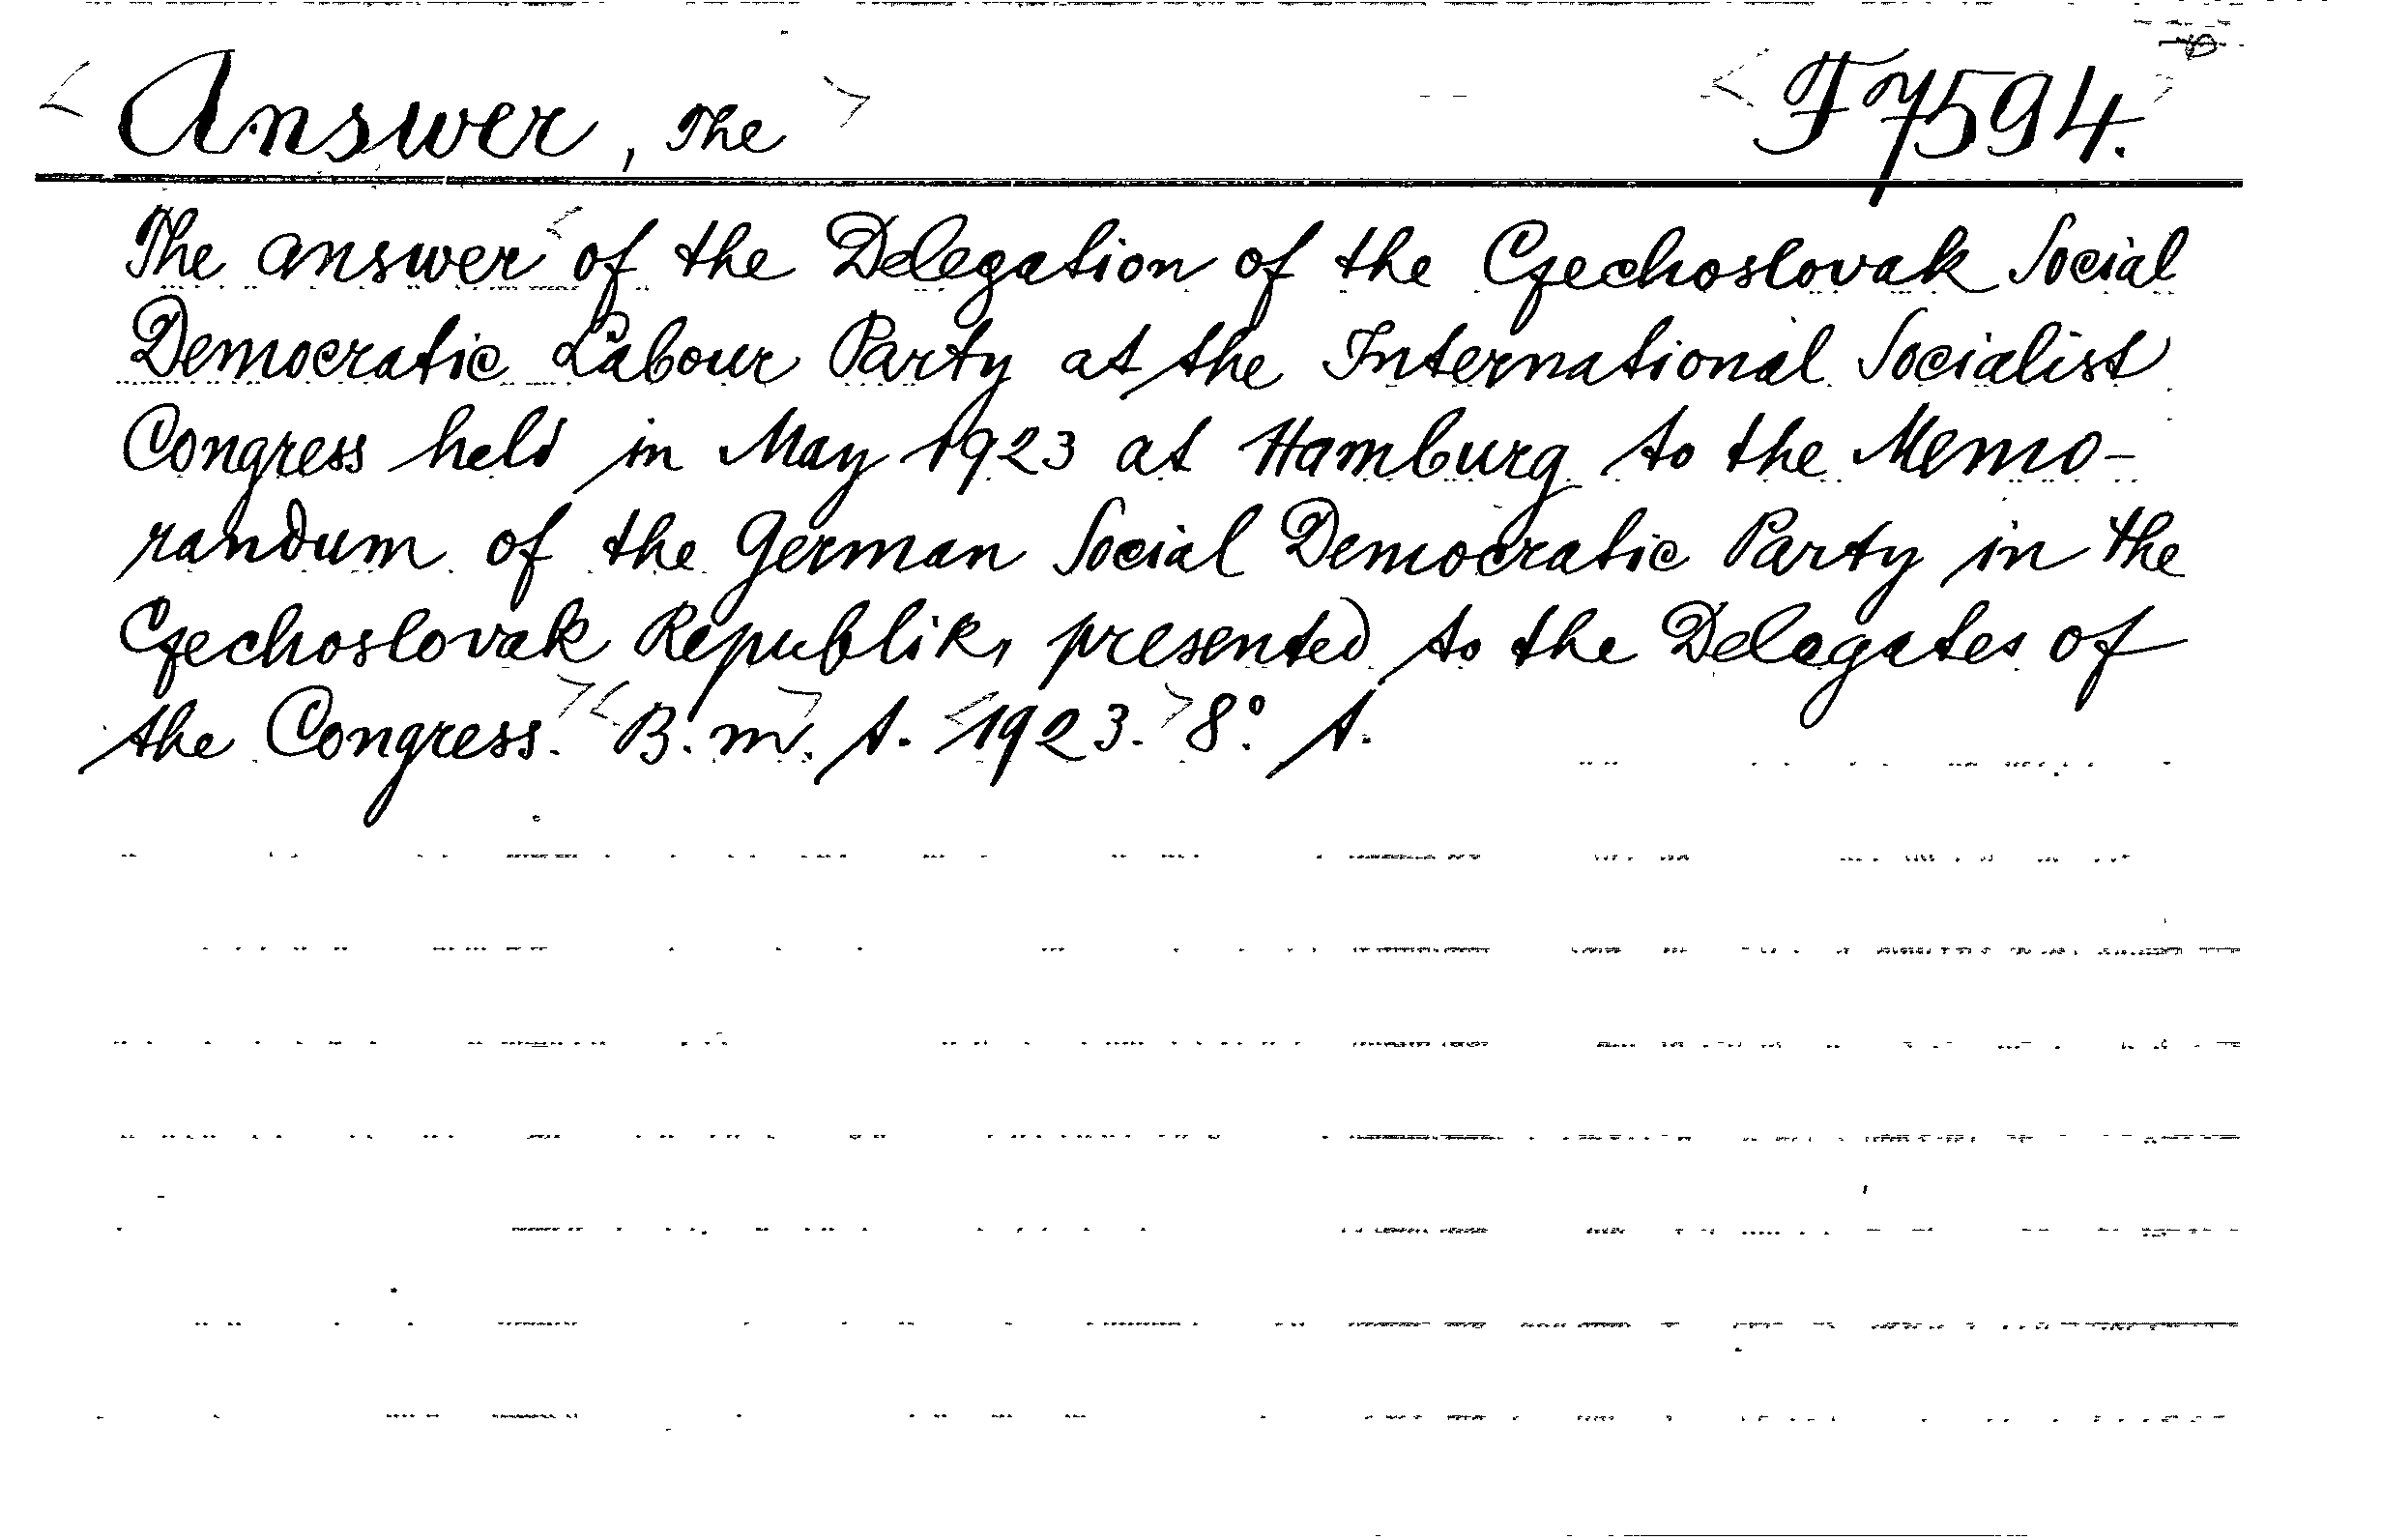 < Answer, The > < F 7594. >
The answer < of the Delegation of the Czechoslovak Social
Democratic Labour Party at the International Socialist
Congress held in May 1923 at Hamburg to the Memo-
randum of the German Social Democratic Party in the
Czechoslovak Republik, presented to the Delegates of
the Congress. > < B. m. > t. < 1923. > 8°. t.